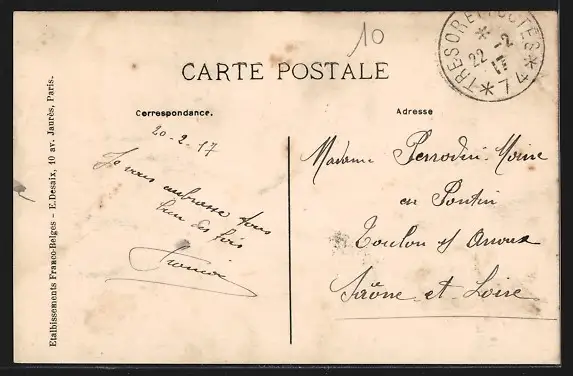 10
TRESOR ET POSTES
22 2
17
* 74 *
CARTE POSTALE
Correspondance.
Adresse
20-2-17
Je vous embrasse tous
bien des fois
Madame Perrodin-Moine
en Pontin
Toulon s/ Arroux
Saône et Loire
Etablissements Franco-Belges – E. Desaix, 10 av. Jaurès, Paris.